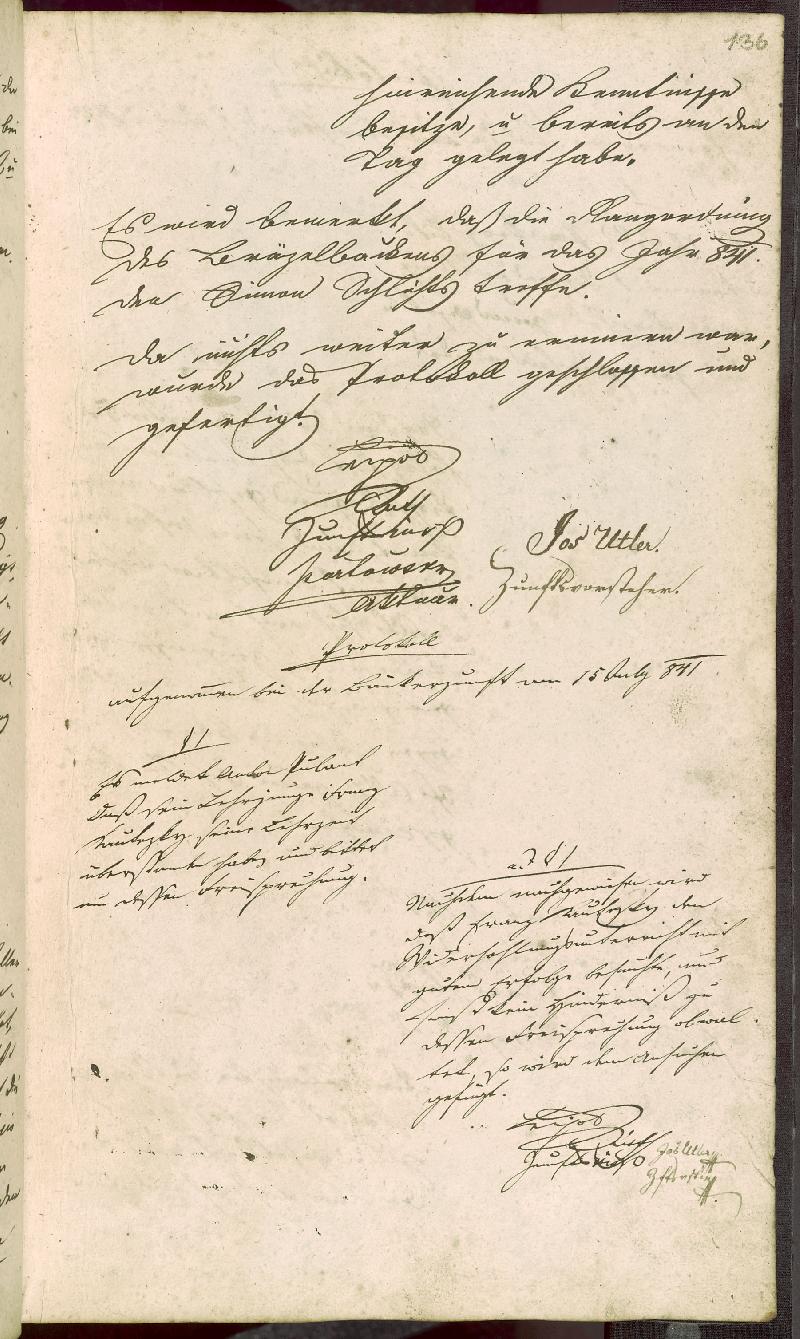 136
hinreichende Kenntniße
besitze, u bereits an den
Tag gelegt habe.
Es wird bemerkt, daß die Rangordnung
des Bräzelbackens für das Jahr 841.
den Simon Schlichts treffe.
Da nichts weiter zu erinnern war,
wurde das Protokoll geschlossen und
gefertigt.
Rath
Aktuar.
Jos Utler.
Zunftsvorsteher.
Protokoll
aufgenommen bei der Bäckerzunft am 15 July 841
§ 1
Es meldet Anton
daß sein Lehrjunge Franz
seine Lehrzeit
überstanden habe, und bittet
um dessen Freisprechung.
ad § 1
Nachdem nachgewiesen wird
daß Franz den
Wiederhohlungsunterricht mit
gutem Erfolge besuchte, und
sonst kein Hinderniß zu
dessen Freisprechung obwal-
tet, so wird dem Ansuchen
gefügt.
Rath
Jos Utler